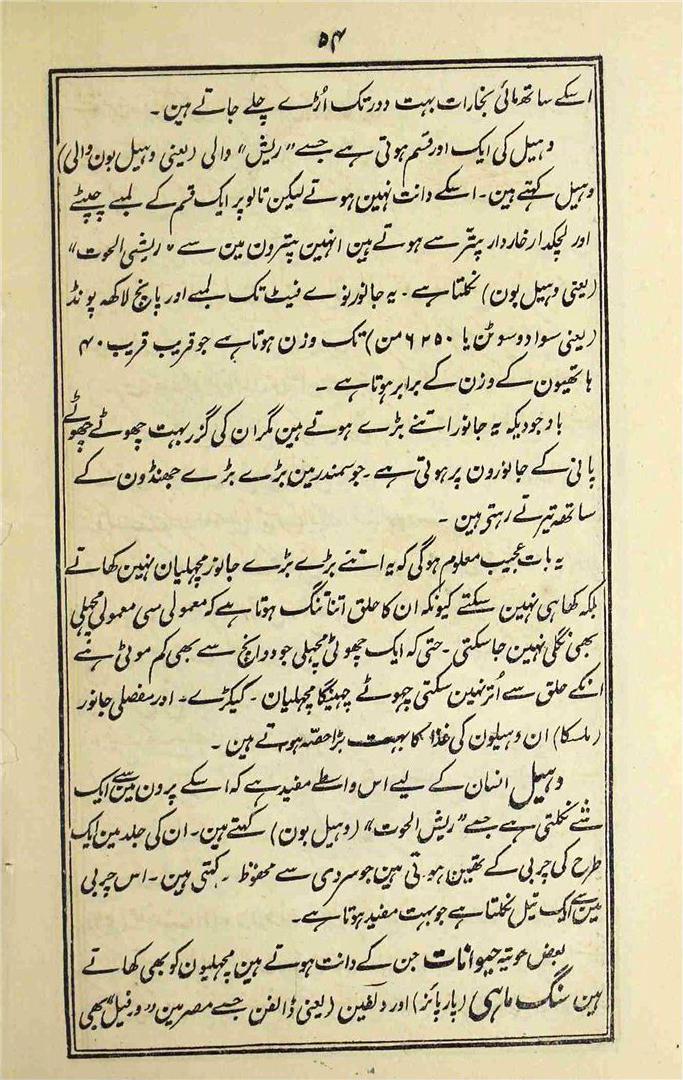 ۵۴
اسکے ساتھ مائی بخارات بہت دور تک اُڑے چلے جاتے ہین ۔
وہیل کی ایک اور قسم ہوتی ہے جسے ”ریش“ والی (یعنی وہیل بون والی)
وہیل کہتے ہین ۔ اسکے دانت نہین ہوتے لیکن تالو پر ایک قسم کے لمبے چپٹے
اور لچکدار خاردار پتّر سے ہوتے ہین انہین پتیرون مین سے ”ریش الحوت“
(یعنی وہیل بون) نکلتا ہے ۔ یہ جانور نوے فیٹ تک لمبے اور پانچ لاکھ پونڈ
(یعنی سوا دو سوٹن یا ۶۲۵۰ من) تک وزن ہوتا ہے جو قریب قریب ۴۰
ہاتھیون کے وزن کے برابر ہوتا ہے ۔
باوجودیکہ یہ جانور اتنے بڑے ہوتے ہین مگر ان کی گزر بہت چھوٹے چھوٹے
پانی کے جانورون پر ہوتی ہے ۔ جو سمندر مین بڑے بڑے جھنڈون کے
ساتھ تیرتے رہتی ہین ۔
یہ بات عجیب معلوم ہوگی کہ یہ اتنے بڑے بڑے جانور مچھلیان نہین کھاتے
بلکہ کھا ہی نہین سکتے کیونکہ ان کا حلق اتنا تنگ ہوتا ہے کہ معمولی سی معمولی مچھلی
بھی نگلی نہین جاسکتی ۔ حتی کہ ایک چھوٹی مچھلی جو دو انچ سے بھی کم موٹی ہے
انکے حلق سے اُتر نہین سکتی چھوٹے جھینگا مچھلیان ۔ کیکڑے ۔ اور مفصلی جانور
(ملسکا) ان وہیلون کی غذا کا بہت بڑا حصّہ ہوتے ہین ۔
وہیل انسان کے لیے اس واسطے مفید ہے کہ اسکے پرون مین سے ایک
شے نکلتی ہے جسے ”ریش الحوت“ (وہیل بون) کہتے ہین ۔ ان کی جلد مین ایک
طرح کی چربی کے تھین ہوتی ہین جو سردی سے محفوظ ۔ کہتی ہین ۔ اس چربی
مین سے ایک تیل نکلتا ہے جو بہت مفید ہوتا ہے ۔
بعض حوتیہ حیوانات جن کے دانت ہوتے ہین مچھلیون کو بھی کھاتے
ہین سنگ ماہی (پارپائز) اور دلفین (یعنی ڈالفن جسے مصر مین ”دفیل“ بھی